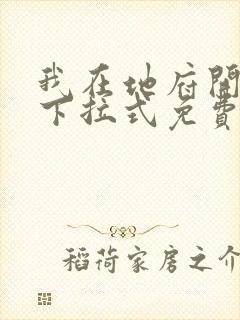 我在地府開
下拉式免費
稻荷家房之介